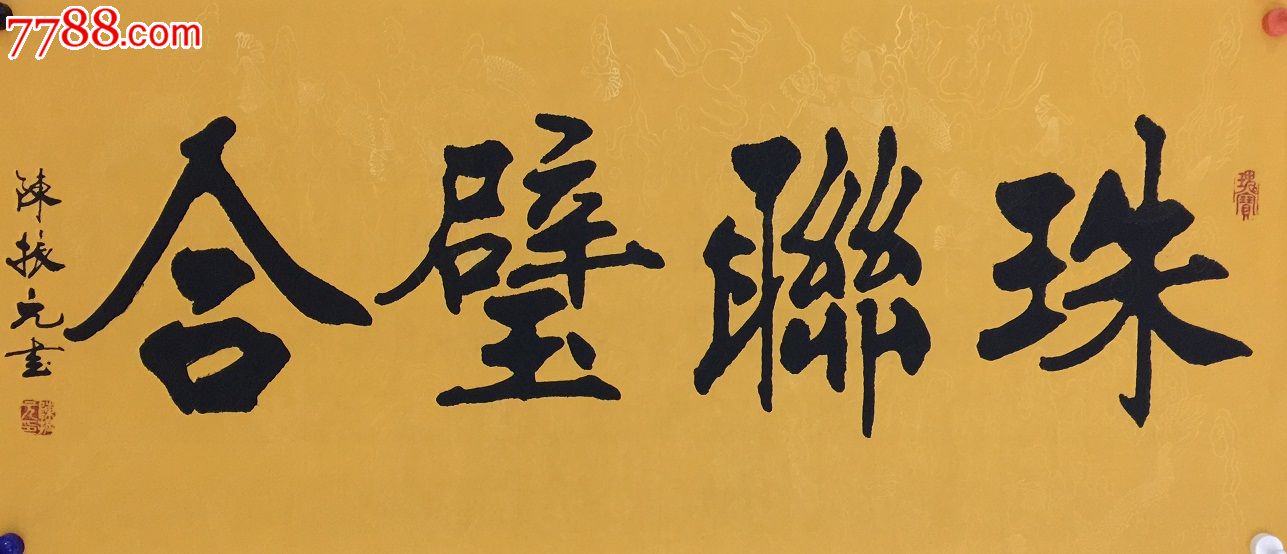 7788.com
珠聯璧合
陳振元書
瑰寶